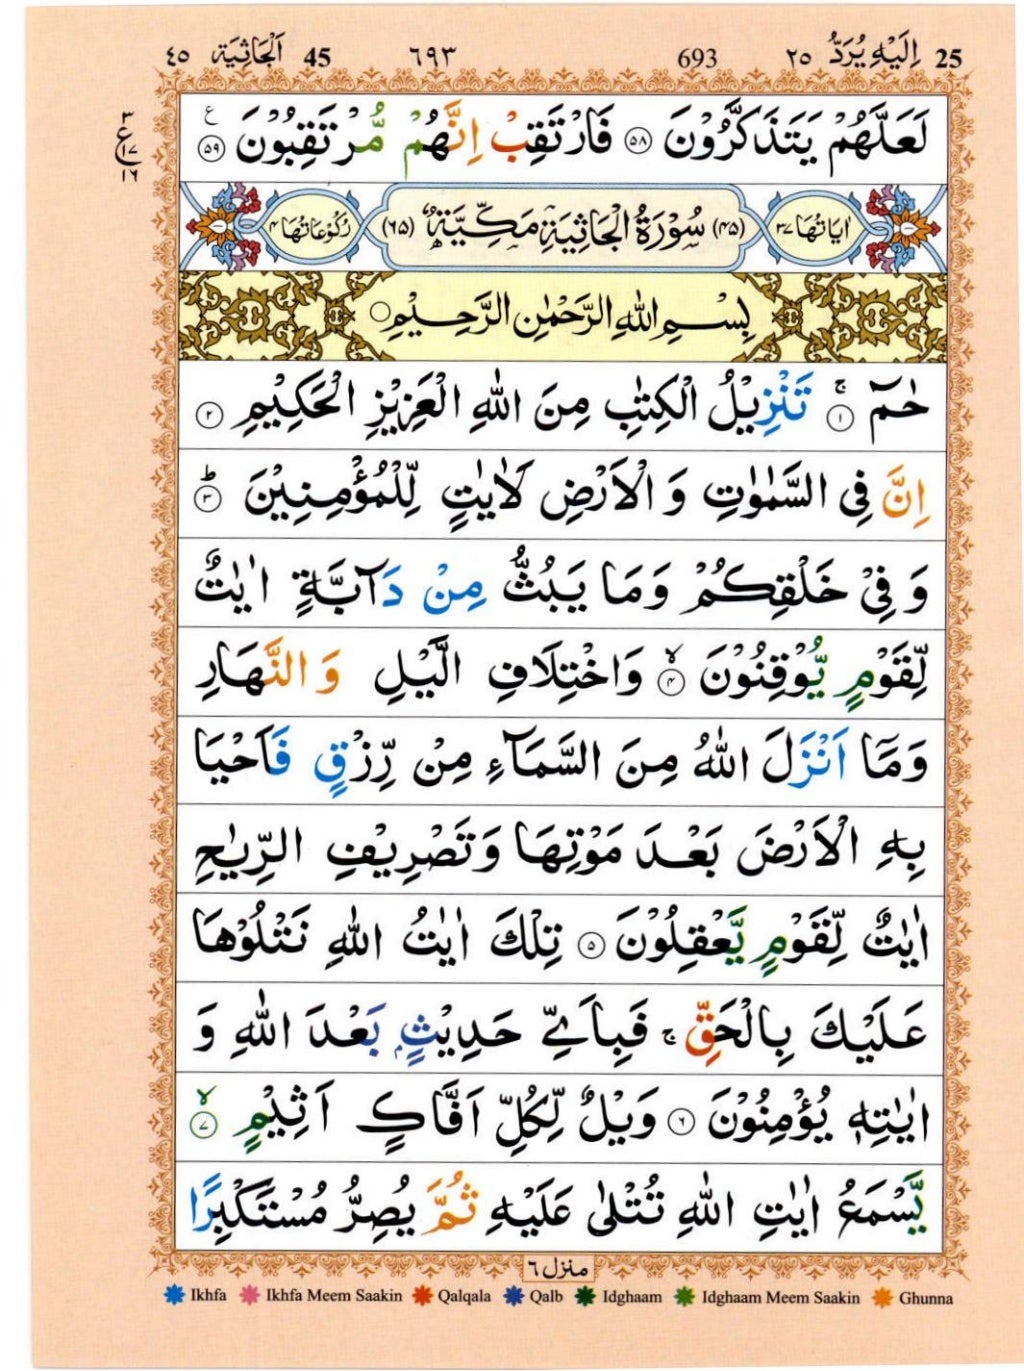 25 اِلَيْهِ يُرَدُّ ٢٥ 693 ٦٩٣ 45 اَلْجَاثِيَة ٤٥
٣ ع ١٧ ١٦
لَعَلَّهُمْ يَتَذَكَّرُوْنَ ﴿۵۸﴾ فَارْتَقِبْ اِنَّهُمْ مُّرْتَقِبُوْنَ ﴿۵۹﴾ ع
اٰيَاتُهَا ٣٧ (٤٥) سُوْرَةُ الْجَاثِيَةِ مَكِّيَّةٌ (٦٥) رُكُوْعَاتُهَا ٤
بِسْمِ اللّٰهِ الرَّحْمٰنِ الرَّحِيْمِ
حٰمٓ ۚ﴿۱﴾ تَنْزِيْلُ الْكِتٰبِ مِنَ اللّٰهِ الْعَزِيْزِ الْحَكِيْمِ ﴿۲﴾
اِنَّ فِى السَّمٰوٰتِ وَ الْاَرْضِ لَاٰيٰتٍ لِّلْمُؤْمِنِيْنَ ؕ﴿۳﴾
وَ فِىْ خَلْقِكُمْ وَمَا يَبُثُّ مِنْ دَآبَّةٍ اٰيٰتٌ
لِّقَوْمٍ يُّوْقِنُوْنَ ۙ﴿۴﴾ وَاخْتِلَافِ الَّيْلِ وَ النَّهَارِ
وَمَاۤ اَنْزَلَ اللّٰهُ مِنَ السَّمَآءِ مِنْ رِّزْقٍ فَاَحْيَا
بِهِ الْاَرْضَ بَعْدَ مَوْتِهَا وَتَصْرِيْفِ الرِّيٰحِ
اٰيٰتٌ لِّقَوْمٍ يَّعْقِلُوْنَ ﴿۵﴾ تِلْكَ اٰيٰتُ اللّٰهِ نَتْلُوْهَا
عَلَيْكَ بِالْحَقِّ ۚ فَبِاَىِّ حَدِيْثٍۭ بَعْدَ اللّٰهِ وَ
اٰيٰتِهٖ يُؤْمِنُوْنَ ﴿۶﴾ وَيْلٌ لِّكُلِّ اَفَّاكٍ اَثِيْمٍ ۙ﴿۷﴾
يَّسْمَعُ اٰيٰتِ اللّٰهِ تُتْلٰى عَلَيْهِ ثُمَّ يُصِرُّ مُسْتَكْبِرًا
منزل ٦
Ikhfa Ikhfa Meem Saakin Qalqala Qalb Idghaam Idghaam Meem Saakin Ghunna